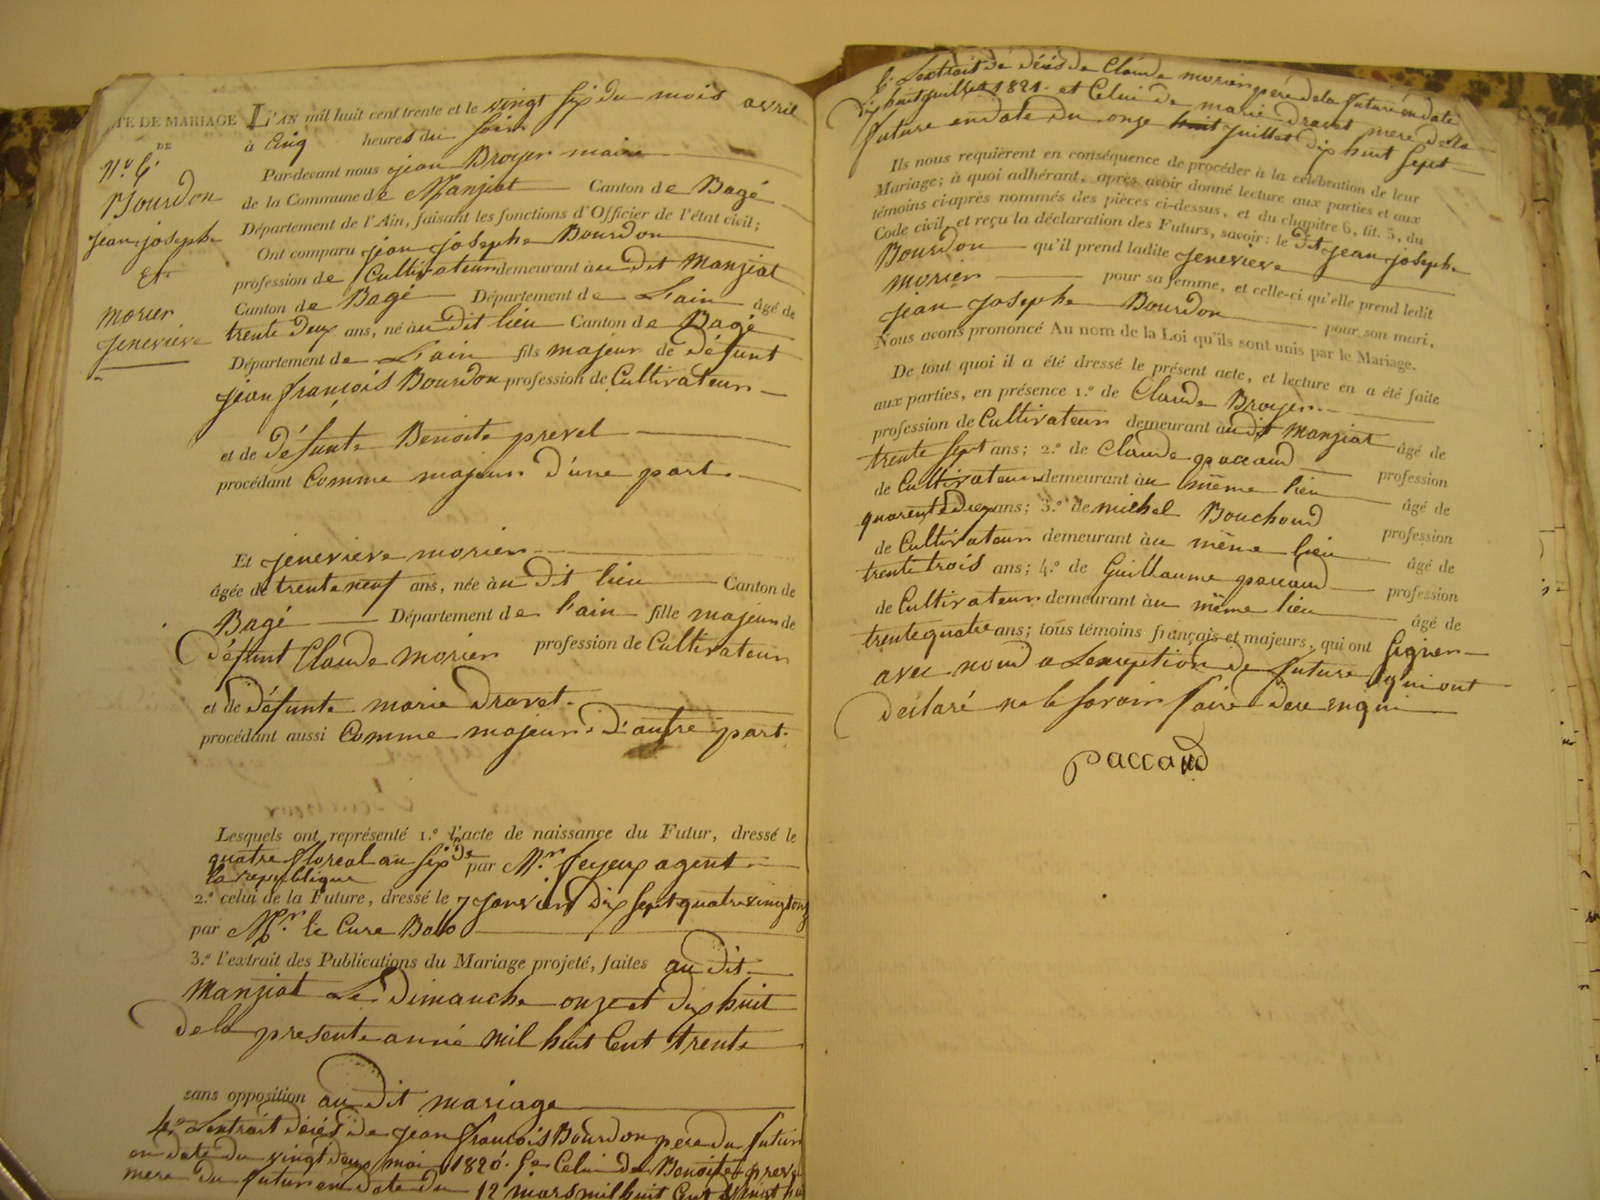 TE DE MARIAGE
DE
N.º 6
Bourdon
jean josephe
Et
morier
jenevieve
L'AN mil huit cent trente et le vingt six du mois avril
à Cinq heures du soir
Par-devant nous jean Broyer maire
de la Commune de Manziat Canton de Bagé
Département de l'Ain, faisant les fonctions d'Officier de l'état civil;
Ont comparu jean josephe Bourdon
profession de Cultivateur demeurant à au dit Manziat
Canton de Bagé Département de L'ain âgé de
trente deux ans, né à au dit lieu Canton de Bagé
Département de L'ain fils majeur de défunt
jean francois Bourdon profession de Cultivateur
et de défunte Benoite prevel
procédant Comme majeur d'une part.
Et jenevieve morier
âgée de trente neuf ans, née à au dit lieu Canton de
Bagé Département de l'ain fille majeur de
défunt Claude morier profession de Cultivateur
et de défunte marie dravet.
procédant aussi Comme majeur d'autre part.
Lesquels ont représenté 1.º l'acte de naissance du Futur, dressé le
quatre floreal an six de
la republique par Mr. feyeux agent
2.º celui de la Future, dressé le 7 janvier dix sept quatre vingt onze
par Mr. le Cure
3.º l'extrait des Publications du Mariage projeté, faites au dit
Manziat Le Dimanche onze et dix huit
de la presente anné mil huit Cent trente
sans opposition au dit mariage
4.º L'extrait décés de jean francois Bourdon pere du futur
en date du vingt deux mai 1820. 5.e Celui de Benoite prevel
mere du futur en date du 12 mars mil huit Cent vingt
6. L'extrait de décés de Claude morier pére de la future en date
dix huit juillet 1821. et Celui de marie dravet mere de la
future en date du onze huit juillet dix huit sept
Ils nous requièrent en conséquence de procéder à la célébration de leur
Mariage; à quoi adhérant, après avoir donné lecture aux parties et aux
témoins ci-après nommés des pièces ci-dessus, et du chapitre 6, tit. 5, du
Code civil, et reçu la déclaration des Futurs, savoir: le dit jean josephe
Bourdon qu'il prend ladite jenevieve
morier pour sa femme, et celle-ci qu'elle prend ledit
jean josephe Bourdon pour son mari,
Nous avons prononcé Au nom de la Loi qu'ils sont unis par le Mariage.
De tout quoi il a été dressé le présent acte, et lecture en a été faite
aux parties, en présence 1.º de Claude Broyer
profession de Cultivateur demeurant à au dit Manziat âgé de
trente sept ans; 2.º de Claude paccaud profession
de Cultivateur demeurant à au même lieu âgé de
quarente deux ans; 3.º de michel Bouchoud profession
de Cultivateur demeurant à au même lieu âgé de
trente trois ans; 4.º de Guillaume paccaud profession
de Cultivateur demeurant à au même lieu âgé de
trente quatre ans; tous témoins français et majeurs, qui ont signer
avec noud a L'exception de future qui ont
declaré ne le savoir faire dece enqui
paccaud